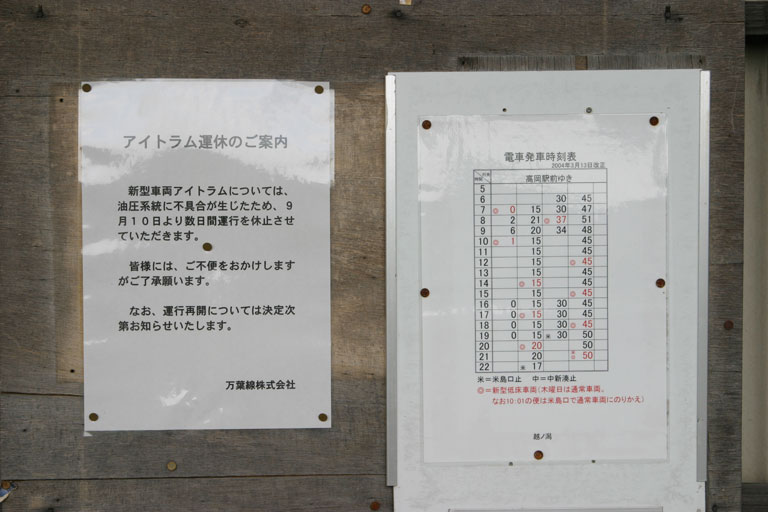 アイトラム運休のご案内
新型車両アイトラムについては、
油圧系統に不具合が生じたため、9
月10日より数日間運行を休止させ
ていただきます。
皆様には、ご不便をおかけします
がご了承願います。
なお、運行再開については決定次
第お知らせいたします。
万葉線株式会社
電車発車時刻表
2004年3月13日改正
高岡駅前ゆき
5
6 30 45
7 ◎ 0 15 30 47
8 2 21 ◎ 37 51
9 6 20 34 48
10 ◎ 1 15 45
11 15 45
12 15 ◎ 45
13 15 45
14 ◎ 15 45
15 15 ◎ 45
16 0 15 30 45
17 0 ◎ 15 30 45
18 0 15 30 ◎ 45
19 0 15 米 30 50
20 ◎ 20 50
21 20 50
22 米 17
米=米島口止 中=中新湊止
◎=新型低床車両(木曜日は通常車両、
なお10:01の便は米島口で通常車両にのりかえ)
越ノ潟